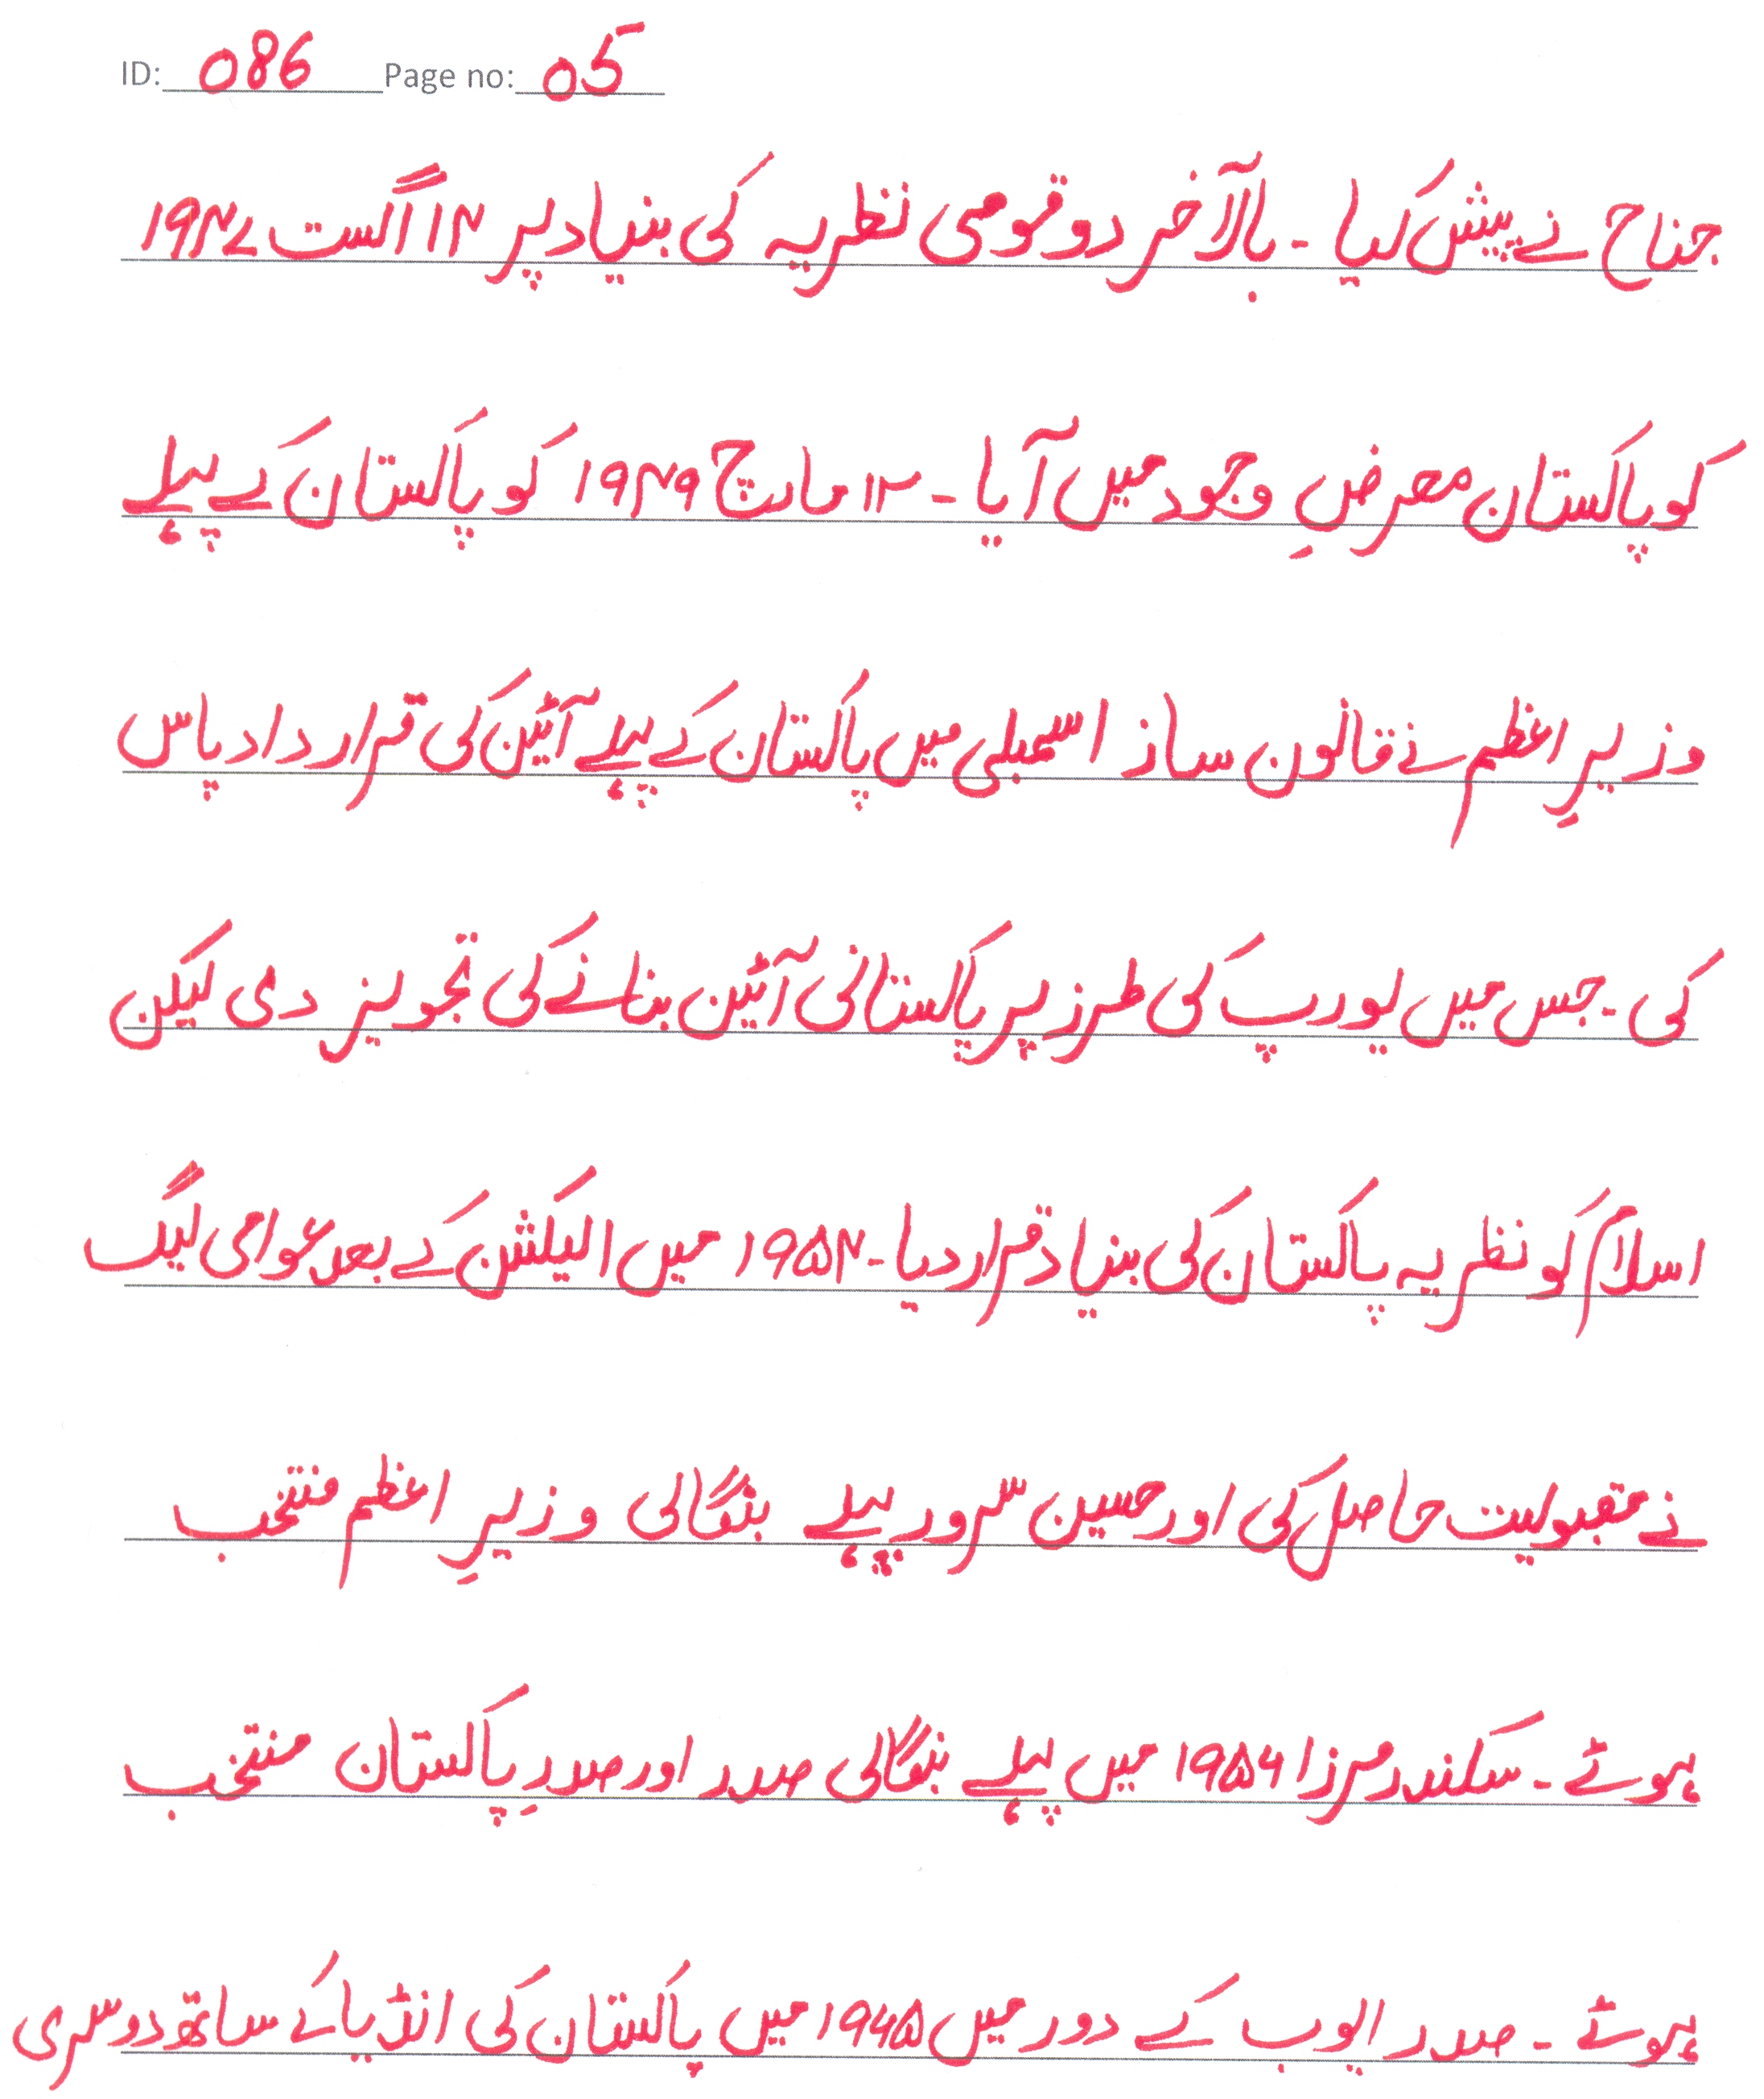 ID: 086 Page no: 05
جناح نے پیش کیا ۔ بالآخر دو قومی نظریہ کی بنیاد پر ۱۴ اگست ۱۹۴۷
کو پاکستان معرضِ وجود میں آیا ۔ ۱۲ مارچ ۱۹۴۹ کو پاکستان کے پہلے
وزیرِ اعظم نے قانون ساز اسمبلی میں پاکستان کے پہلے آئین کی قرارداد پاس
کی ۔ جس میں یورپ کی طرز پر پاکستانی آئین بنانے کی تجویز دی لیکن
اسلام کو نظریہ پاکستان کی بنیاد قرار دیا ۔ ۱۹۵۴ میں الیکشن کے بعد عوامی لیگ
نے مقبولیت حاصل کی اور حسین سرور پہلے بنگالی وزیرِ اعظم منتخب
ہوئے ۔ سکندر مرزا ۱۹۵۶ میں پہلے بنگالی صدر اور صدرِ پاکستان منتخب
ہوئے ۔ صدر ایوب کے دور میں ۱۹۶۵ میں پاکستان کی انڈیا کے ساتھ دوسری